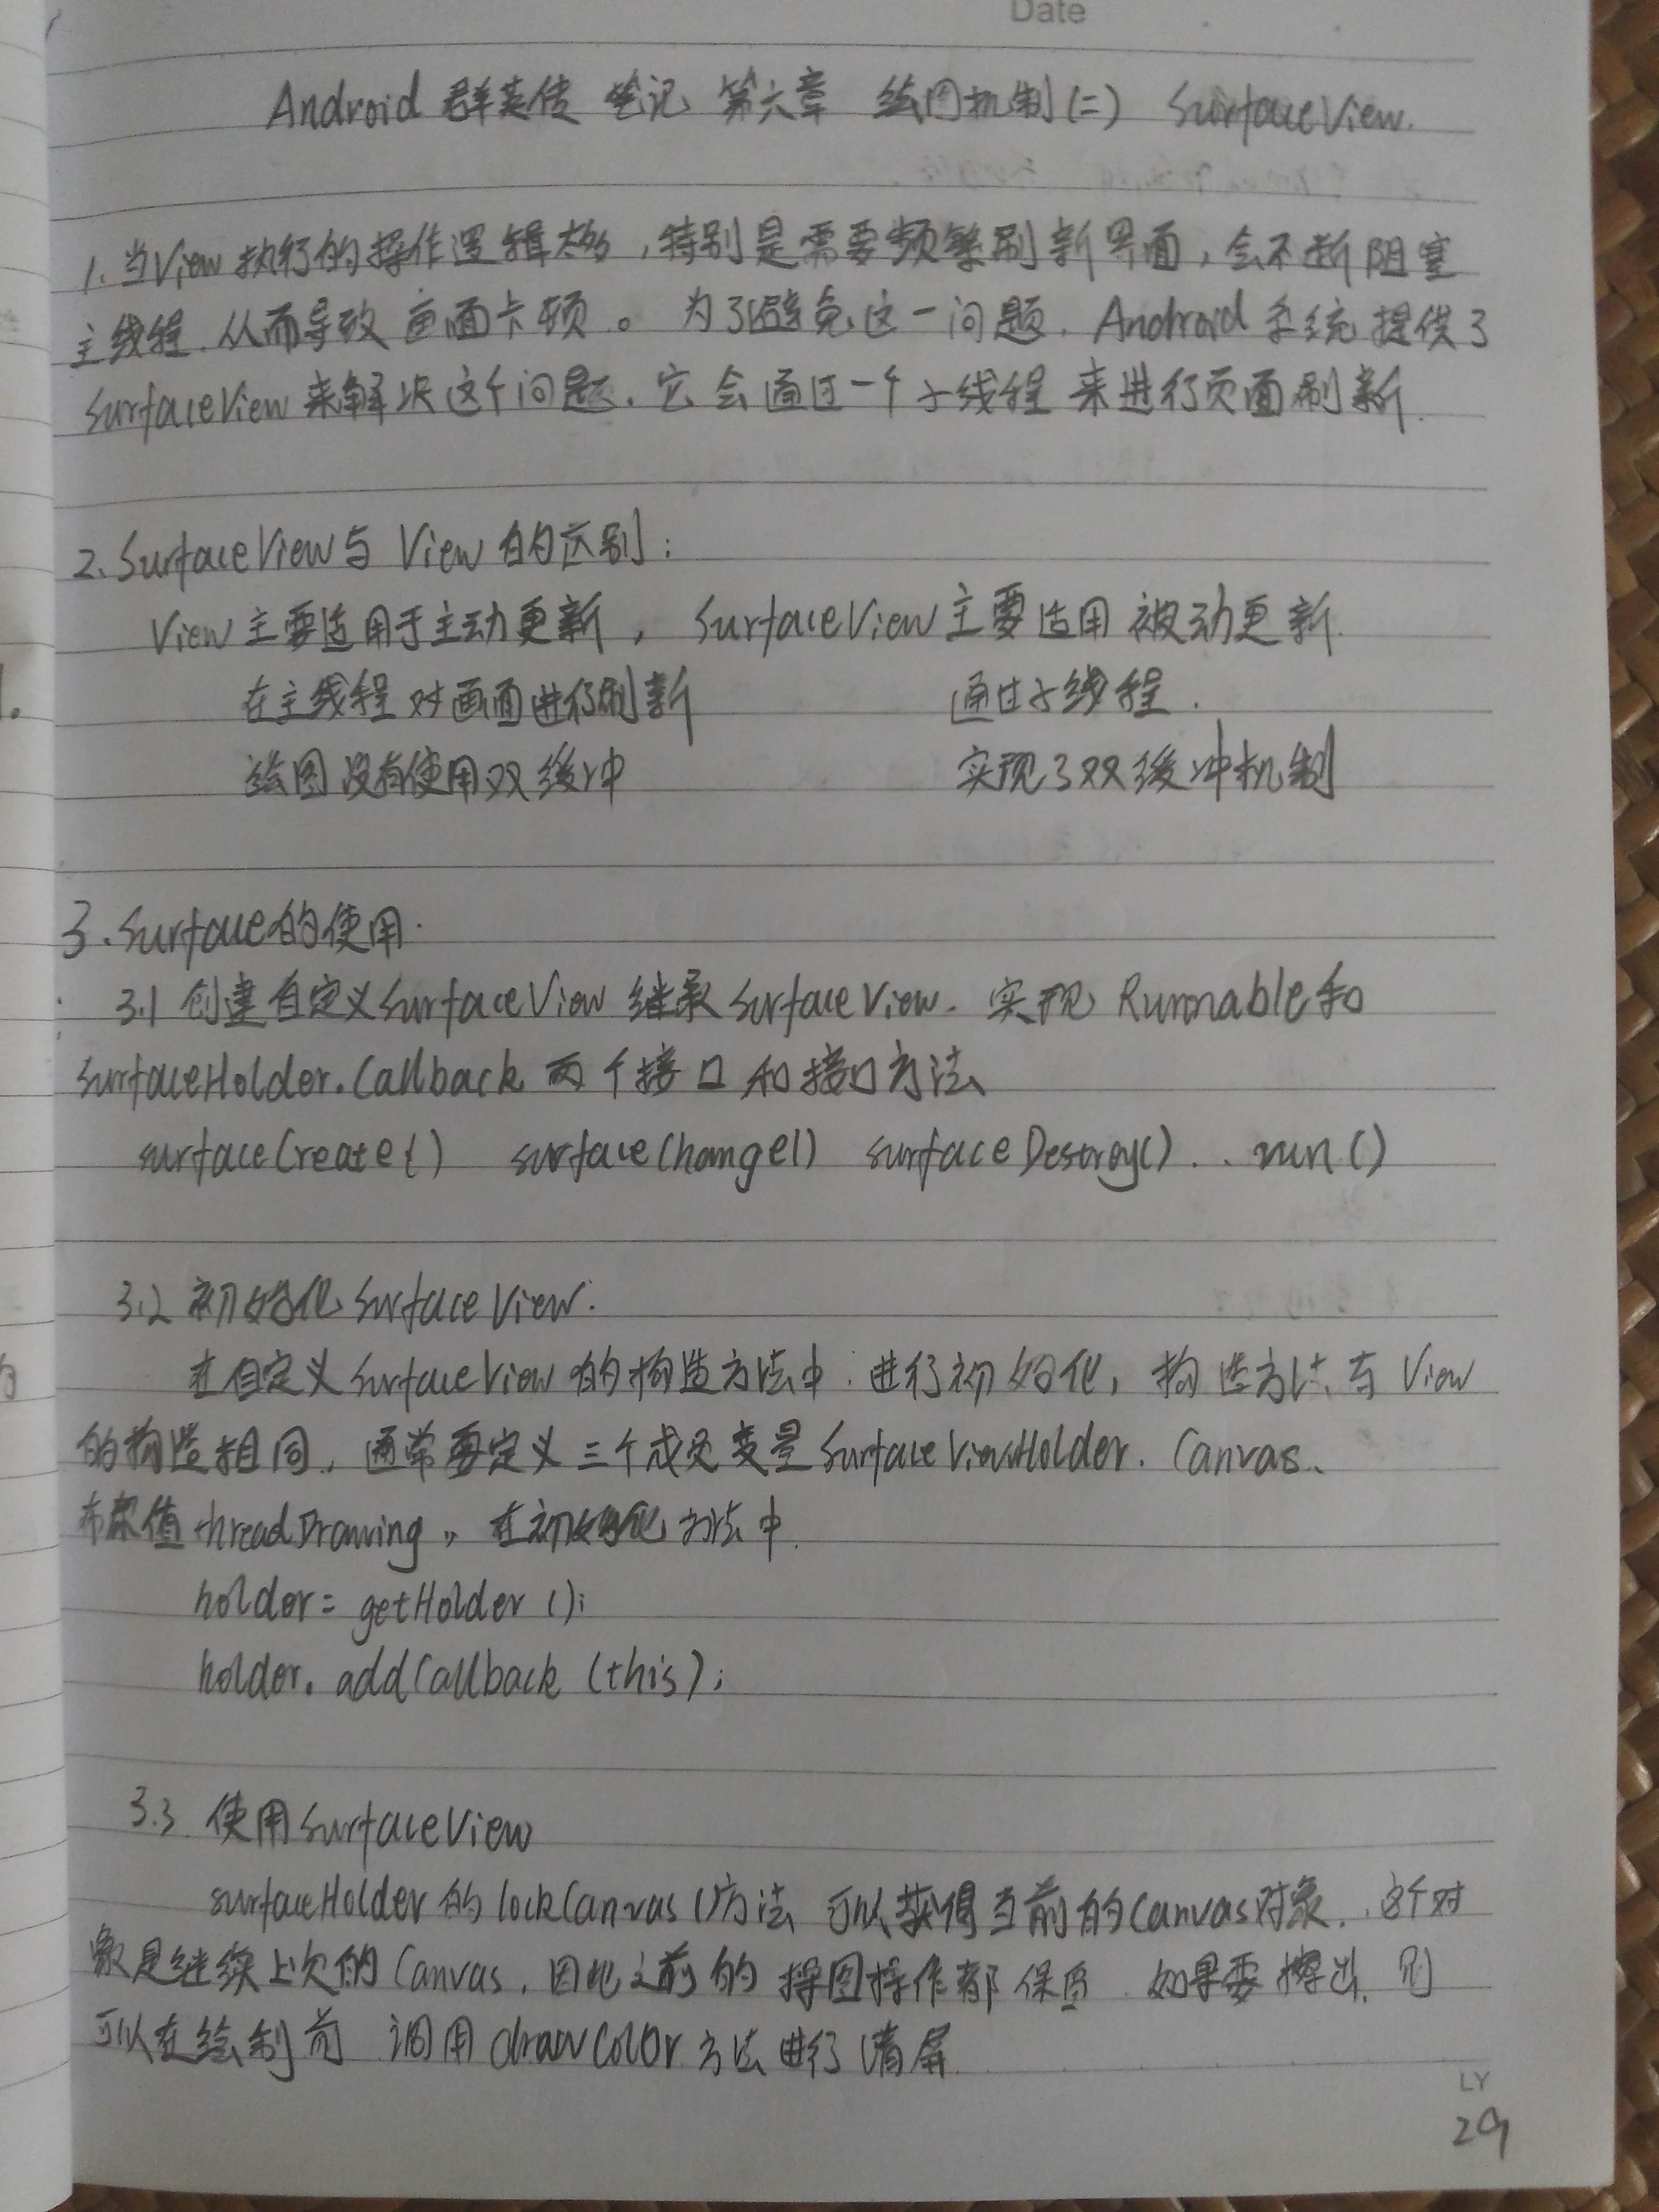 Date
Android 群英传 笔记 第六章 绘图机制(二) SurfaceView.
1.当View执行的操作逻辑太多,特别是需要频繁刷新界面,会不断阻塞
主线程.从而导致画面卡顿。为了避免这一问题.Android系统提供了
SurfaceView来解决这个问题.它会通过一个子线程来进行页面刷新.
2.SurfaceView与View的区别:
View主要适用于主动更新, SurfaceView主要适用被动更新.
在主线程对画面进行刷新 通过子线程.
绘图没有使用双缓冲 实现了双缓冲机制
3.Surface的使用.
3.1 创建自定义SurfaceView继承SurfaceView.实现Runnable和
SurfaceHolder.Callback两个接口和接口方法
surfaceCreate() surfaceChange() surfaceDestroy()..run()
3.2 初始化SurfaceView.
在自定义SurfaceView的构造方法中.进行初始化,构造方法与View
的构造相同,通常要定义三个成员变量SurfaceViewHolder.Canvas、
布尔值threadDrawing,,在初始化方法中.
holder=getHolder();
holder.addCallback(this);
3.3 使用SurfaceView
surfaceHolder的lockCanvas()方法 可以获得当前的Canvas对象.这个对
象是继续上次的Canvas.因此之前的 操作都保留.如果要擦出,则
可以在绘制前 调用drawColor方法进行清屏.
LY
29